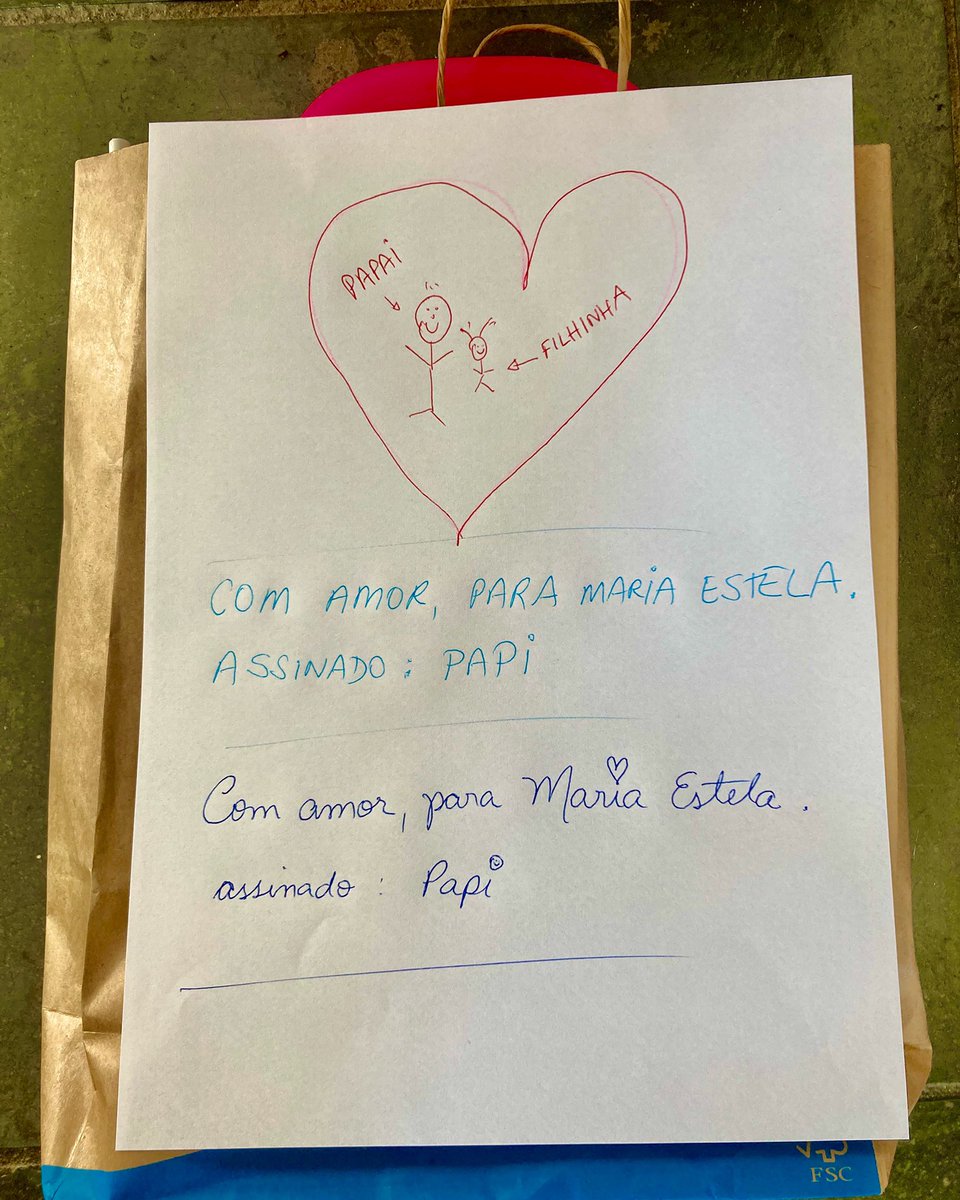 PAPAi
FILHINHA
COM AMOR, PARA MARiA ESTELA.
ASSINADO: PAPi
Com amor, para Maria Estela.
assinado: Papi
FSC